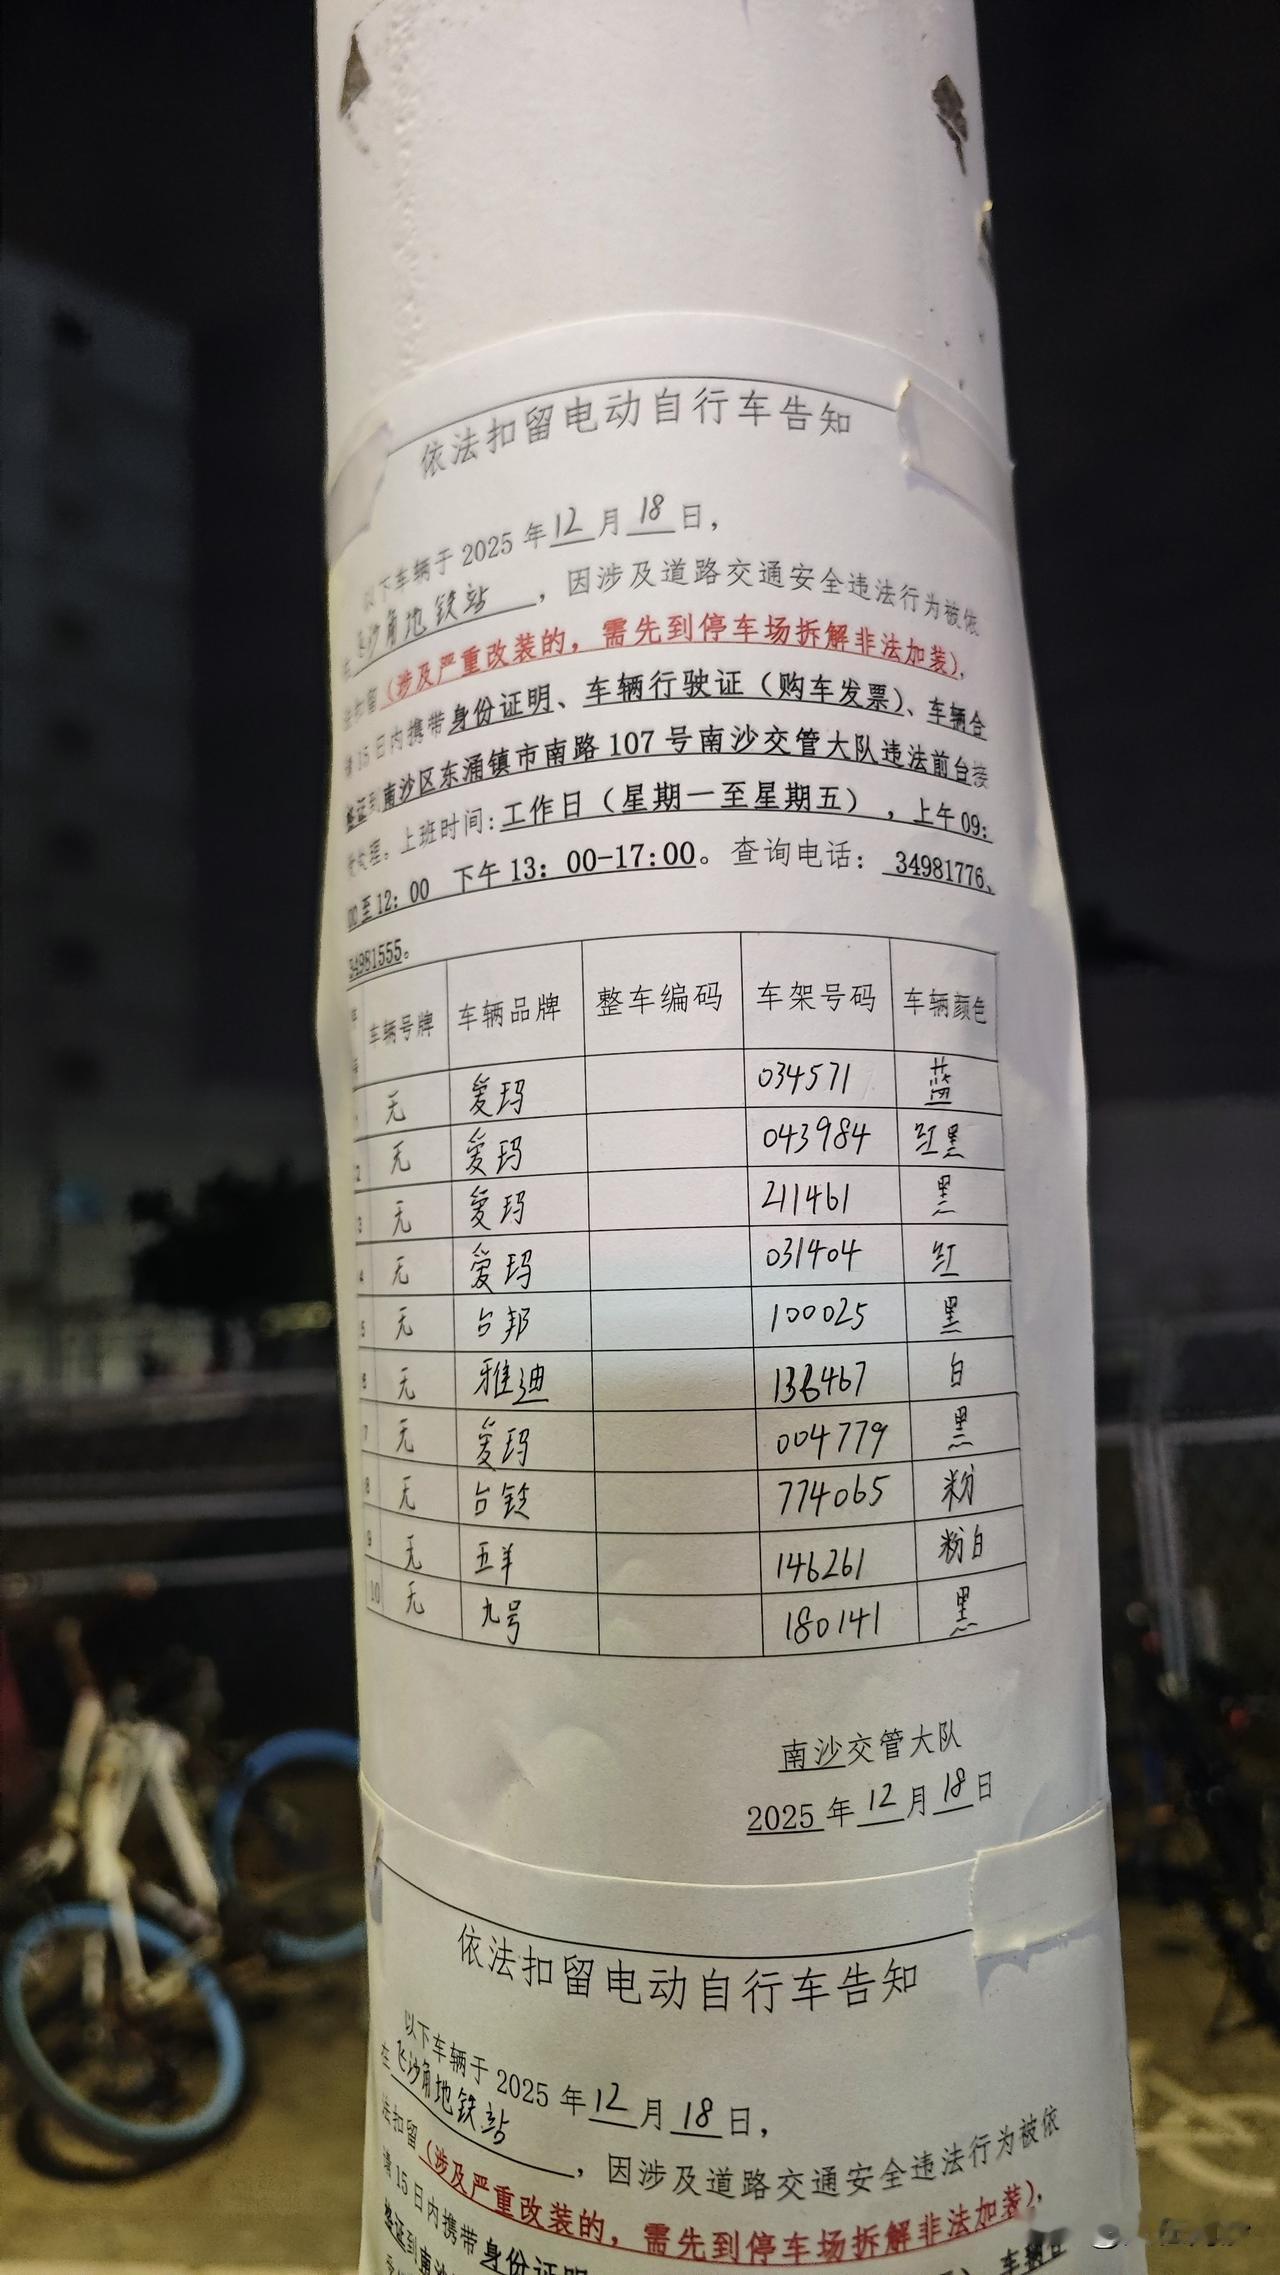 依法扣留电动自行车告知
以下车辆于2025年12月18日，
在飞沙角地铁站，因涉及道路交通安全违法行为被依
法扣留（涉及严重改装的，需先到停车场拆解非法加装），
请15日内携带身份证明、车辆行驶证（购车发票）、车辆合
格证到南沙区东涌镇市南路107号南沙交管大队违法前台接
受处理。上班时间：工作日（星期一至星期五），上午09：
00至12：00 下午13：00-17:00。查询电话：34981776、
34981555。
序号 车辆号牌 车辆品牌 整车编码 车架号码 车辆颜色
1 无 爱玛 034571 蓝
2 无 爱玛 043984 红黑
3 无 爱玛 211461 黑
4 无 爱玛 031404 红
5 无 台邦 100025 黑
6 无 雅迪 136467 白
7 无 爱玛 004779 黑
8 无 台铃 774065 粉
9 无 五羊 146261 粉白
10 无 九号 180141 黑
南沙交管大队
2025年12月18日
依法扣留电动自行车告知
以下车辆于2025年12月18日，
在飞沙角地铁站，因涉及道路交通安全违法行为被依
法扣留（涉及严重改装的，需先到停车场拆解非法加装），
请15日内携带身份证明 车辆合
格证到南沙